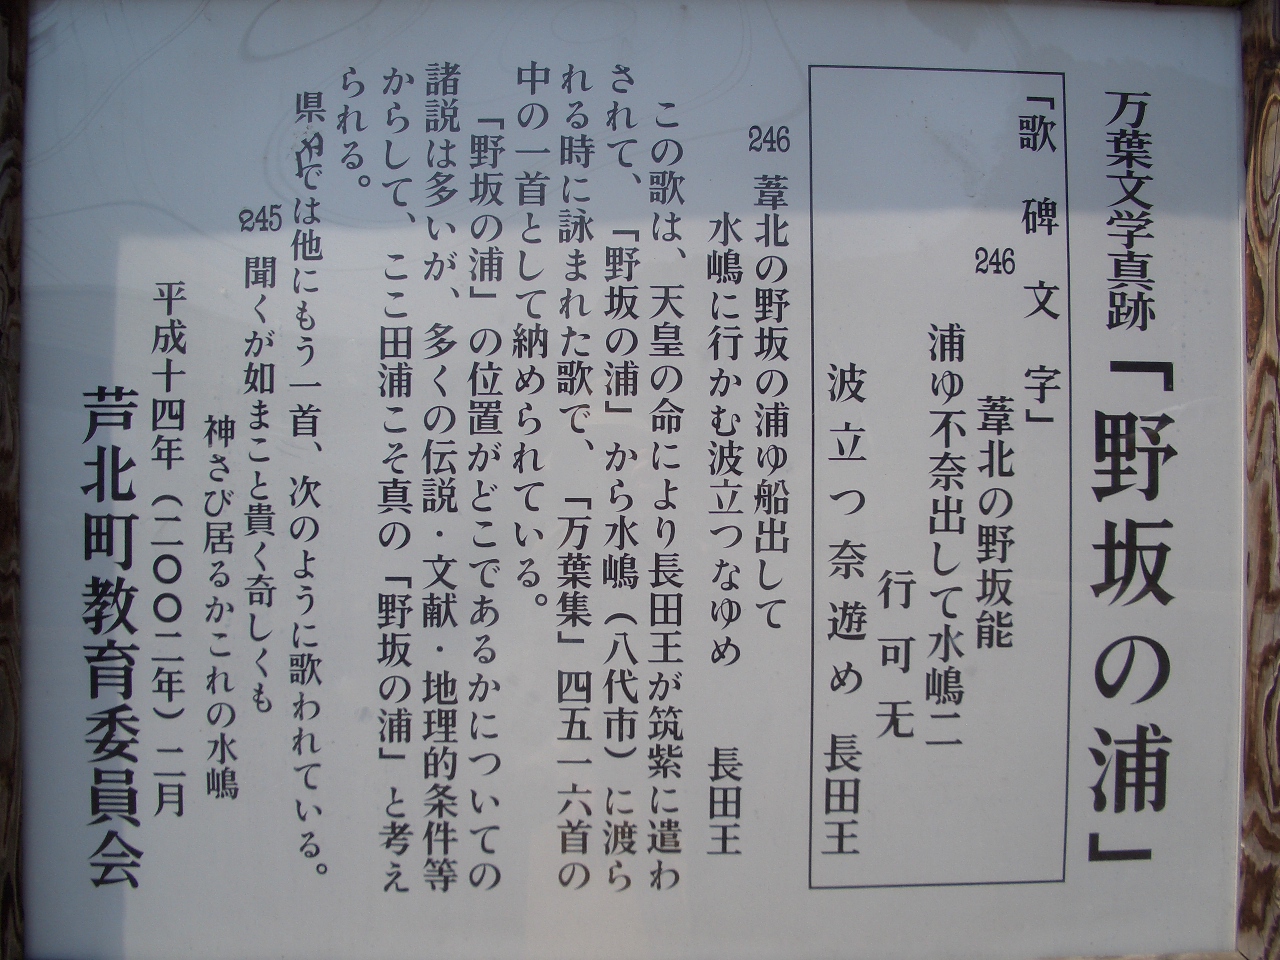 万葉文学真跡「野坂の浦」
「歌碑文字」
246 葦北の野坂能
浦ゆ不奈出して水嶋二
行可无
波立つ奈遊め 長田王
246 葦北の野坂の浦ゆ船出して
水嶋に行かむ波立つなゆめ 長田王
この歌は、天皇の命により長田王が筑紫に遣わ
されて、「野坂の浦」から水嶋(八代市)に渡ら
れる時に詠まれた歌で、「万葉集」四五一六首の
中の一首として納められている。
「野坂の浦」の位置がどこであるかについての
諸説は多いが、多くの伝説・文献・地理的条件等
からして、ここ田浦こそ真の「野坂の浦」と考え
られる。
県内では他にもう一首、次のように歌われている。
245 聞くが如まこと貴く奇しくも
神さび居るかこれの水嶋
平成十四年(二〇〇二年)二月
芦北町教育委員会